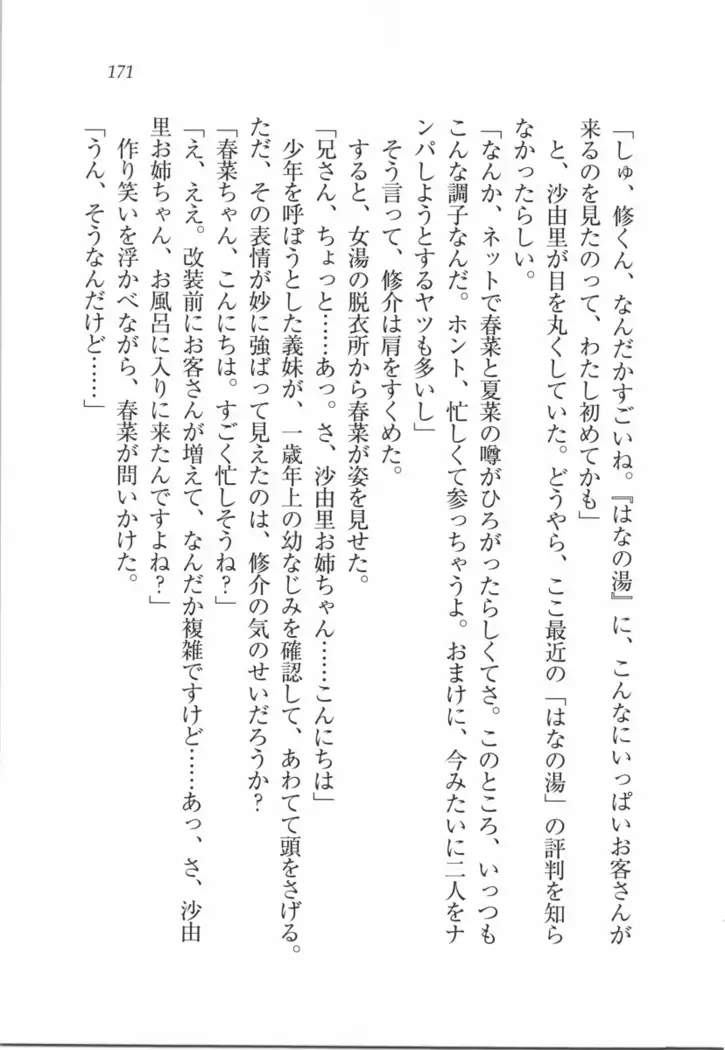 171
「しゅ、修くん、なんだかすごいね。『はなの湯』に、こんなにいっぱいお客さんが
来るのを見たのって、わたし初めてかも」
と、沙由里が目を丸くしていた。どうやら、ここ最近の「はなの湯」の評判を知ら
なかったらしい。
「なんか、ネットで春菜と夏菜の噂がひろがったらしくてさ。このところ、いっつも
こんな調子なんだ。ホント、忙しくて参っちゃうよ。おまけに、今みたいに二人をナ
ンパしようとするヤツも多いし」
そう言って、修介は肩をすくめた。
すると、女湯の脱衣所から春菜が姿を見せた。
「兄さん、ちょっと……あっ。さ、沙由里お姉ちゃん……こんにちは」
少年を呼ぼうとした義妹が、一歳年上の幼なじみを確認して、あわてて頭をさげる。
ただ、その表情が妙に強ばって見えたのは、修介の気のせいだろうか?
「春菜ちゃん、こんにちは。すごく忙しそうね?」
「え、ええ。改装前にお客さんが増えて、なんだか複雑ですけど……あっ、さ、沙由
里お姉ちゃん、お風呂に入りに来たんですよね?」
作り笑いを浮かべながら、春菜が問いかけた。
「うん、そうなんだけど……」